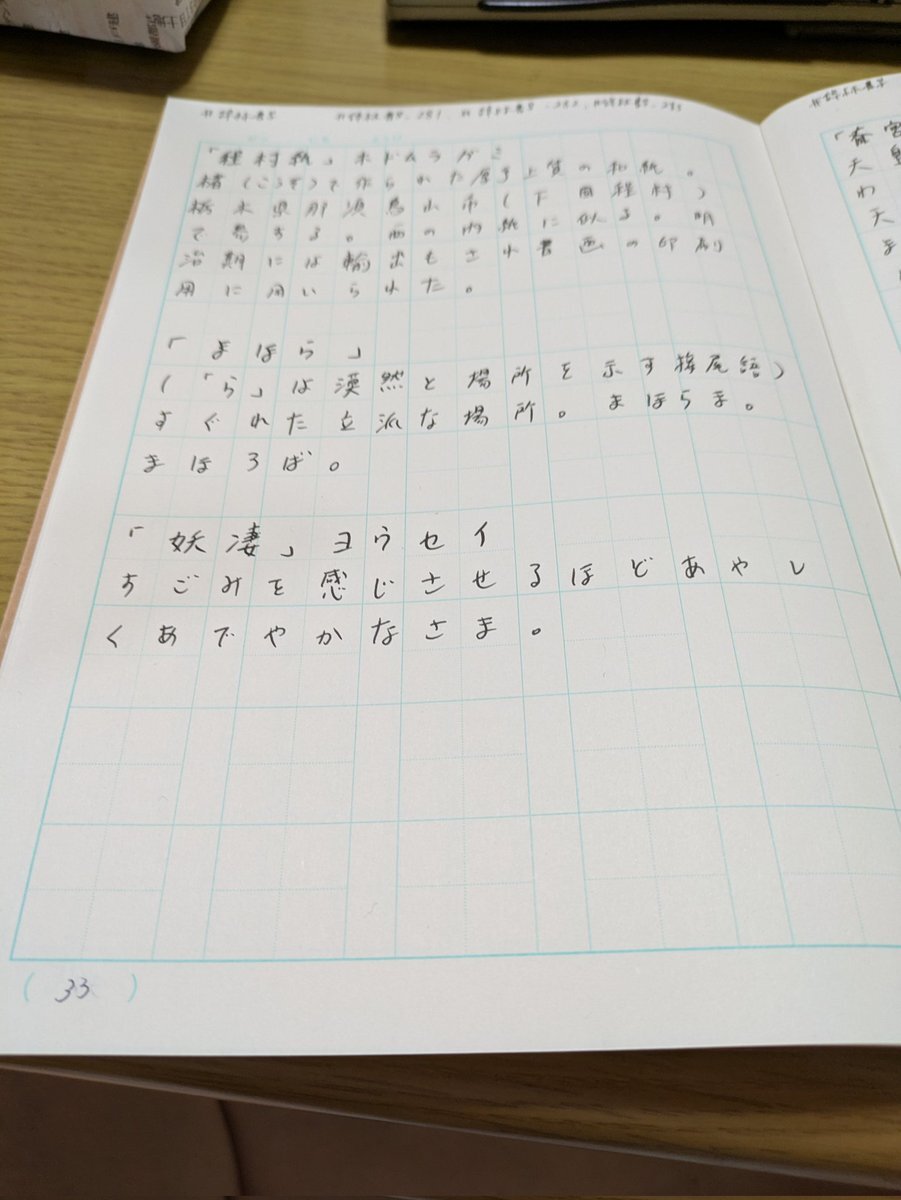 #辞林数 #辞林数.281. #辞林数.282. #辞林数.283
「程村紙」ホドムラガミ
楮(こうぞ)で作られた厚手上質の和紙。
栃木県那須烏山市(下図程村)
で産する。西の内紙に似る。明
治期には輸出もされ書画の印刷
用に用いられた。
「まほら」
(「ら」は漠然と場所を示す接尾語)
すぐれた立派な場所。まほらま。
まほろば。
「妖凄」ヨウセイ
すごみを感じさせるほどあやし
くあでやかなさま。
(33)